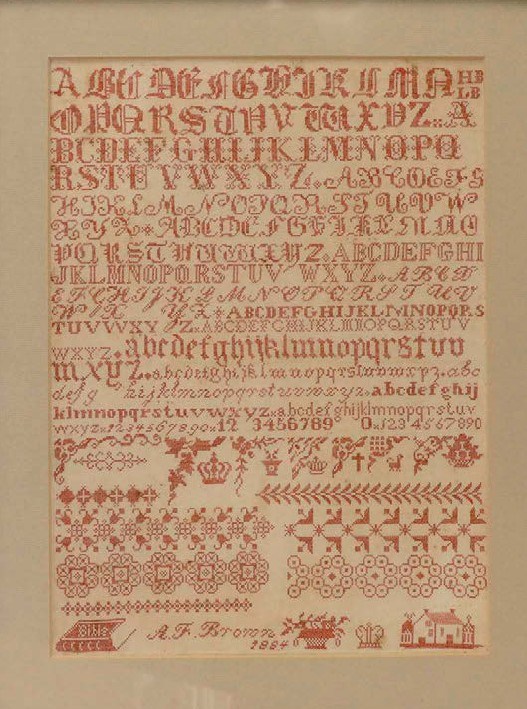 A B C D E F G H I K L M N HB
LB
O P Q R S T U V W X Y Z A
B C D E F G H I J K L M N O P Q
R S T U V W X Y Z A B C D E F G
H I K L M N O P Q R S T U V W
X Y Z A B C D E F G H I K L M N O
P Q R S T U V W X Y Z. A B C D E F G H I
J K L M N O P Q R S T U V W X Y Z. A B C D
E F G H I J K L M N O P Q R S T U V
W X Y Z A B C D E F G H I J K L M N O P Q R S
T U V W X Y Z A B C D E F G H I J K L M N O P Q R S T U V
W X Y Z. a b c d e f g h i j k l m n o p q r s t u v
w x y z. a b c d e f g h i j k l m n o p q r s t u v w x y z. a b c
d e f g h i j k l m n o p q r s t u v w x y z. a b c d e f g h i j
k l m n o p q r s t u v w x y z. a b c d e f g h i j k l m n o p q r s t u v
w x y z 1 2 3 4 5 6 7 8 9 0 12 3456789 0 1 2 3 4 5 6 7 8 9 0
BIBLE
A. F. Brown
1884